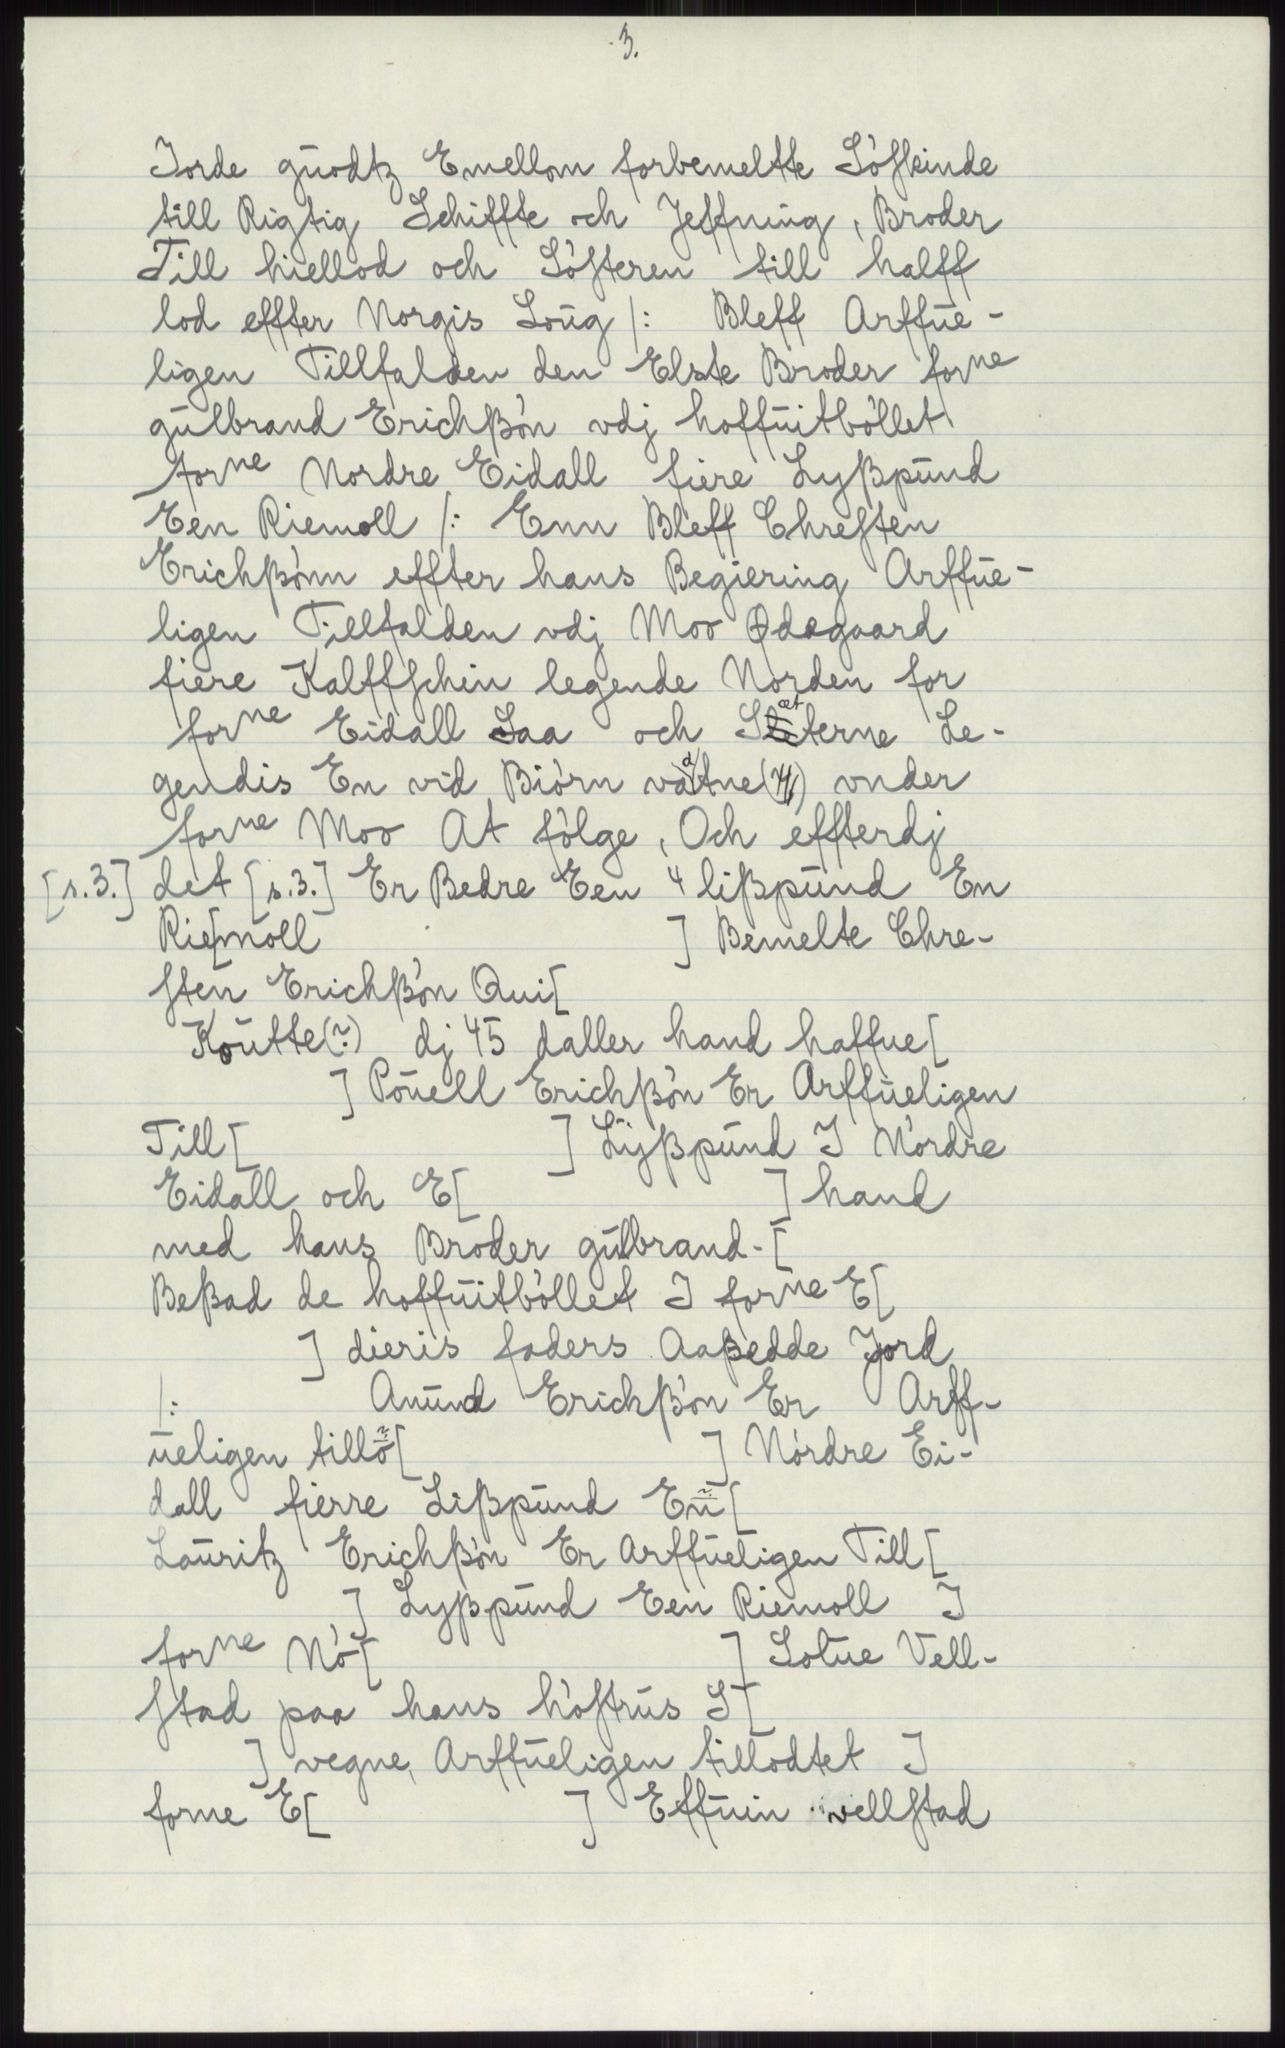 3.
Jorde guodtz Emellom forbemeltte Söskeinde
till Rigtig Schiffte och Jeffning, Broder
Till hiellod och Sösteren till halff
lod effter Norgis Loug /: Bleff Arffue-
ligen Tillfalden den Elste Broder forne
gulbrand Erichßön vdj hoffuitböllet
forne Nordre Eidall fiere Lyßpund
Een Riemoll /: Enn Bleff Chresten
Erichßönn effter hans Begiering Arffue-
ligen Tillfalden vdj Moo Ødegaard
fiere Kalffschin legende Norden for
forne Eidall Saa och Sæterne Le-
gendis En vid Biörn vatne(?) vnder
forne Moo At fölge, Och effterdj
[s.3.] det [s.3.] Er Bedre Een 4 lißpund En
Rie[moll ] Bemelte Chre-
sten Erichßön Qui[
Koutte(?) dj 45 daller hand haffue[
] Pouell Erichßön Er Arffueligen
Till[ ] Lyßpund I Nordre
Eidall och E[ ] hand
med hans Broder gulbrand-[
Beßad de hoffuitböllet I forne E[
] dieris faders Aaßedde Jord
/: Anund Erichßön Er Arff-
ueligen tillo[ ] Nordre Ei-
dall fierre Lißpund En[
Lauritz Erichßön Er Arffueligen Till[
] Lyßpund Een Riemoll I
forne No[ ] Lotue Vell-
stad paa hans höstrus S[
] vegne, Arffueligen tillodtet I
forne E[ ] Effuin vellstad